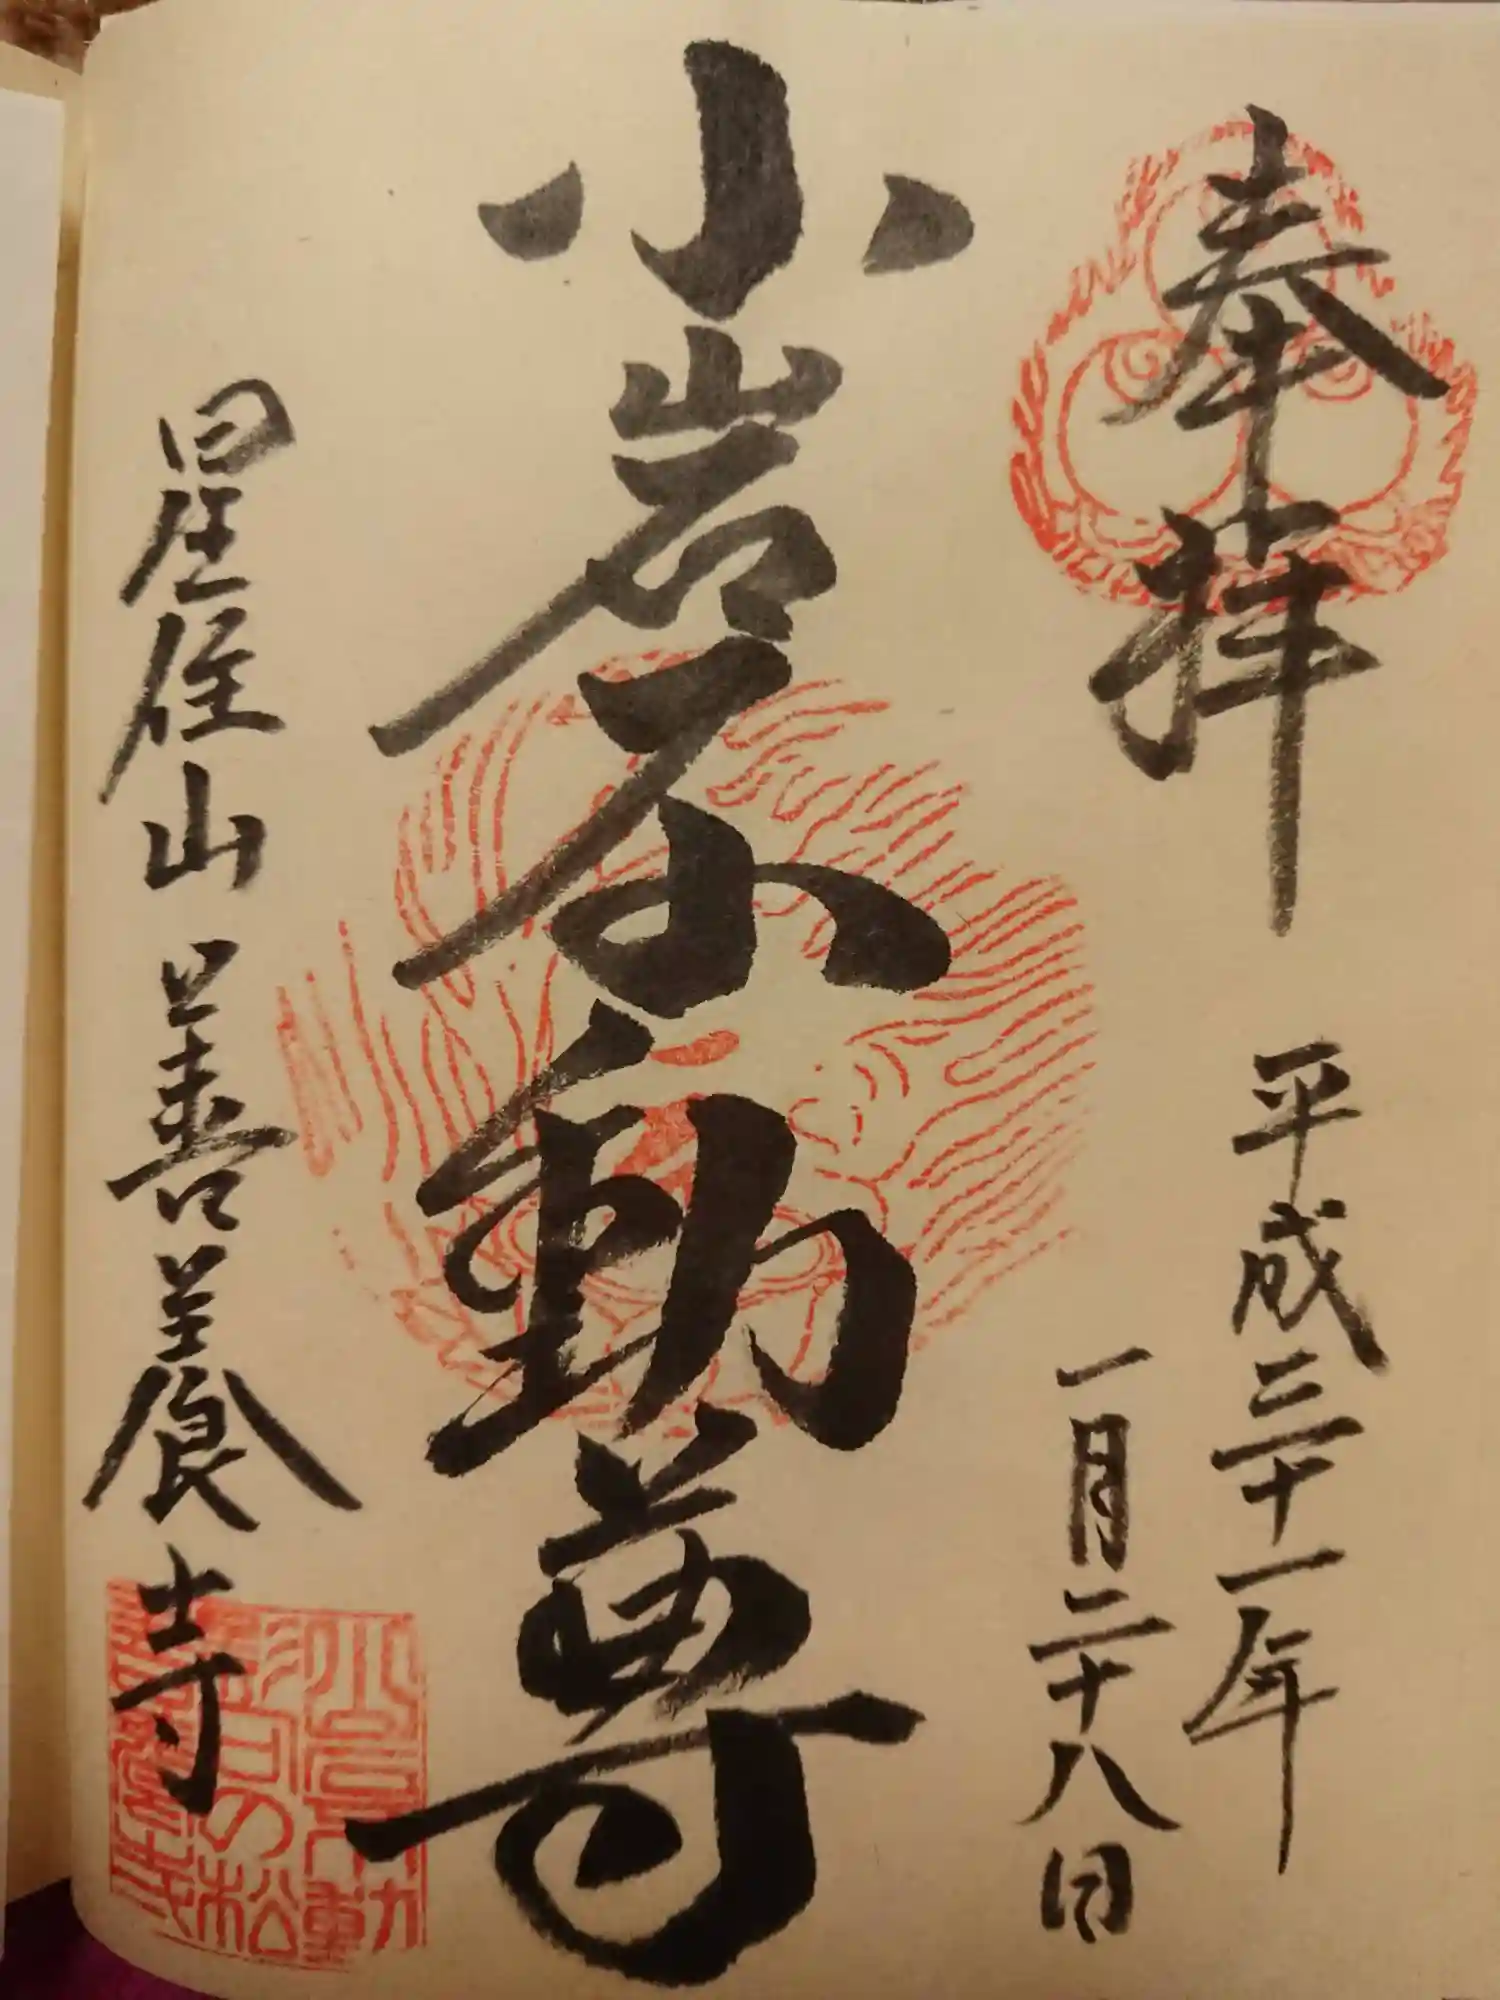 奉拝
平成三十一年
一月二十八日
小岩不動尊
星住山 善養寺
小岩不動
影向の松
善養寺